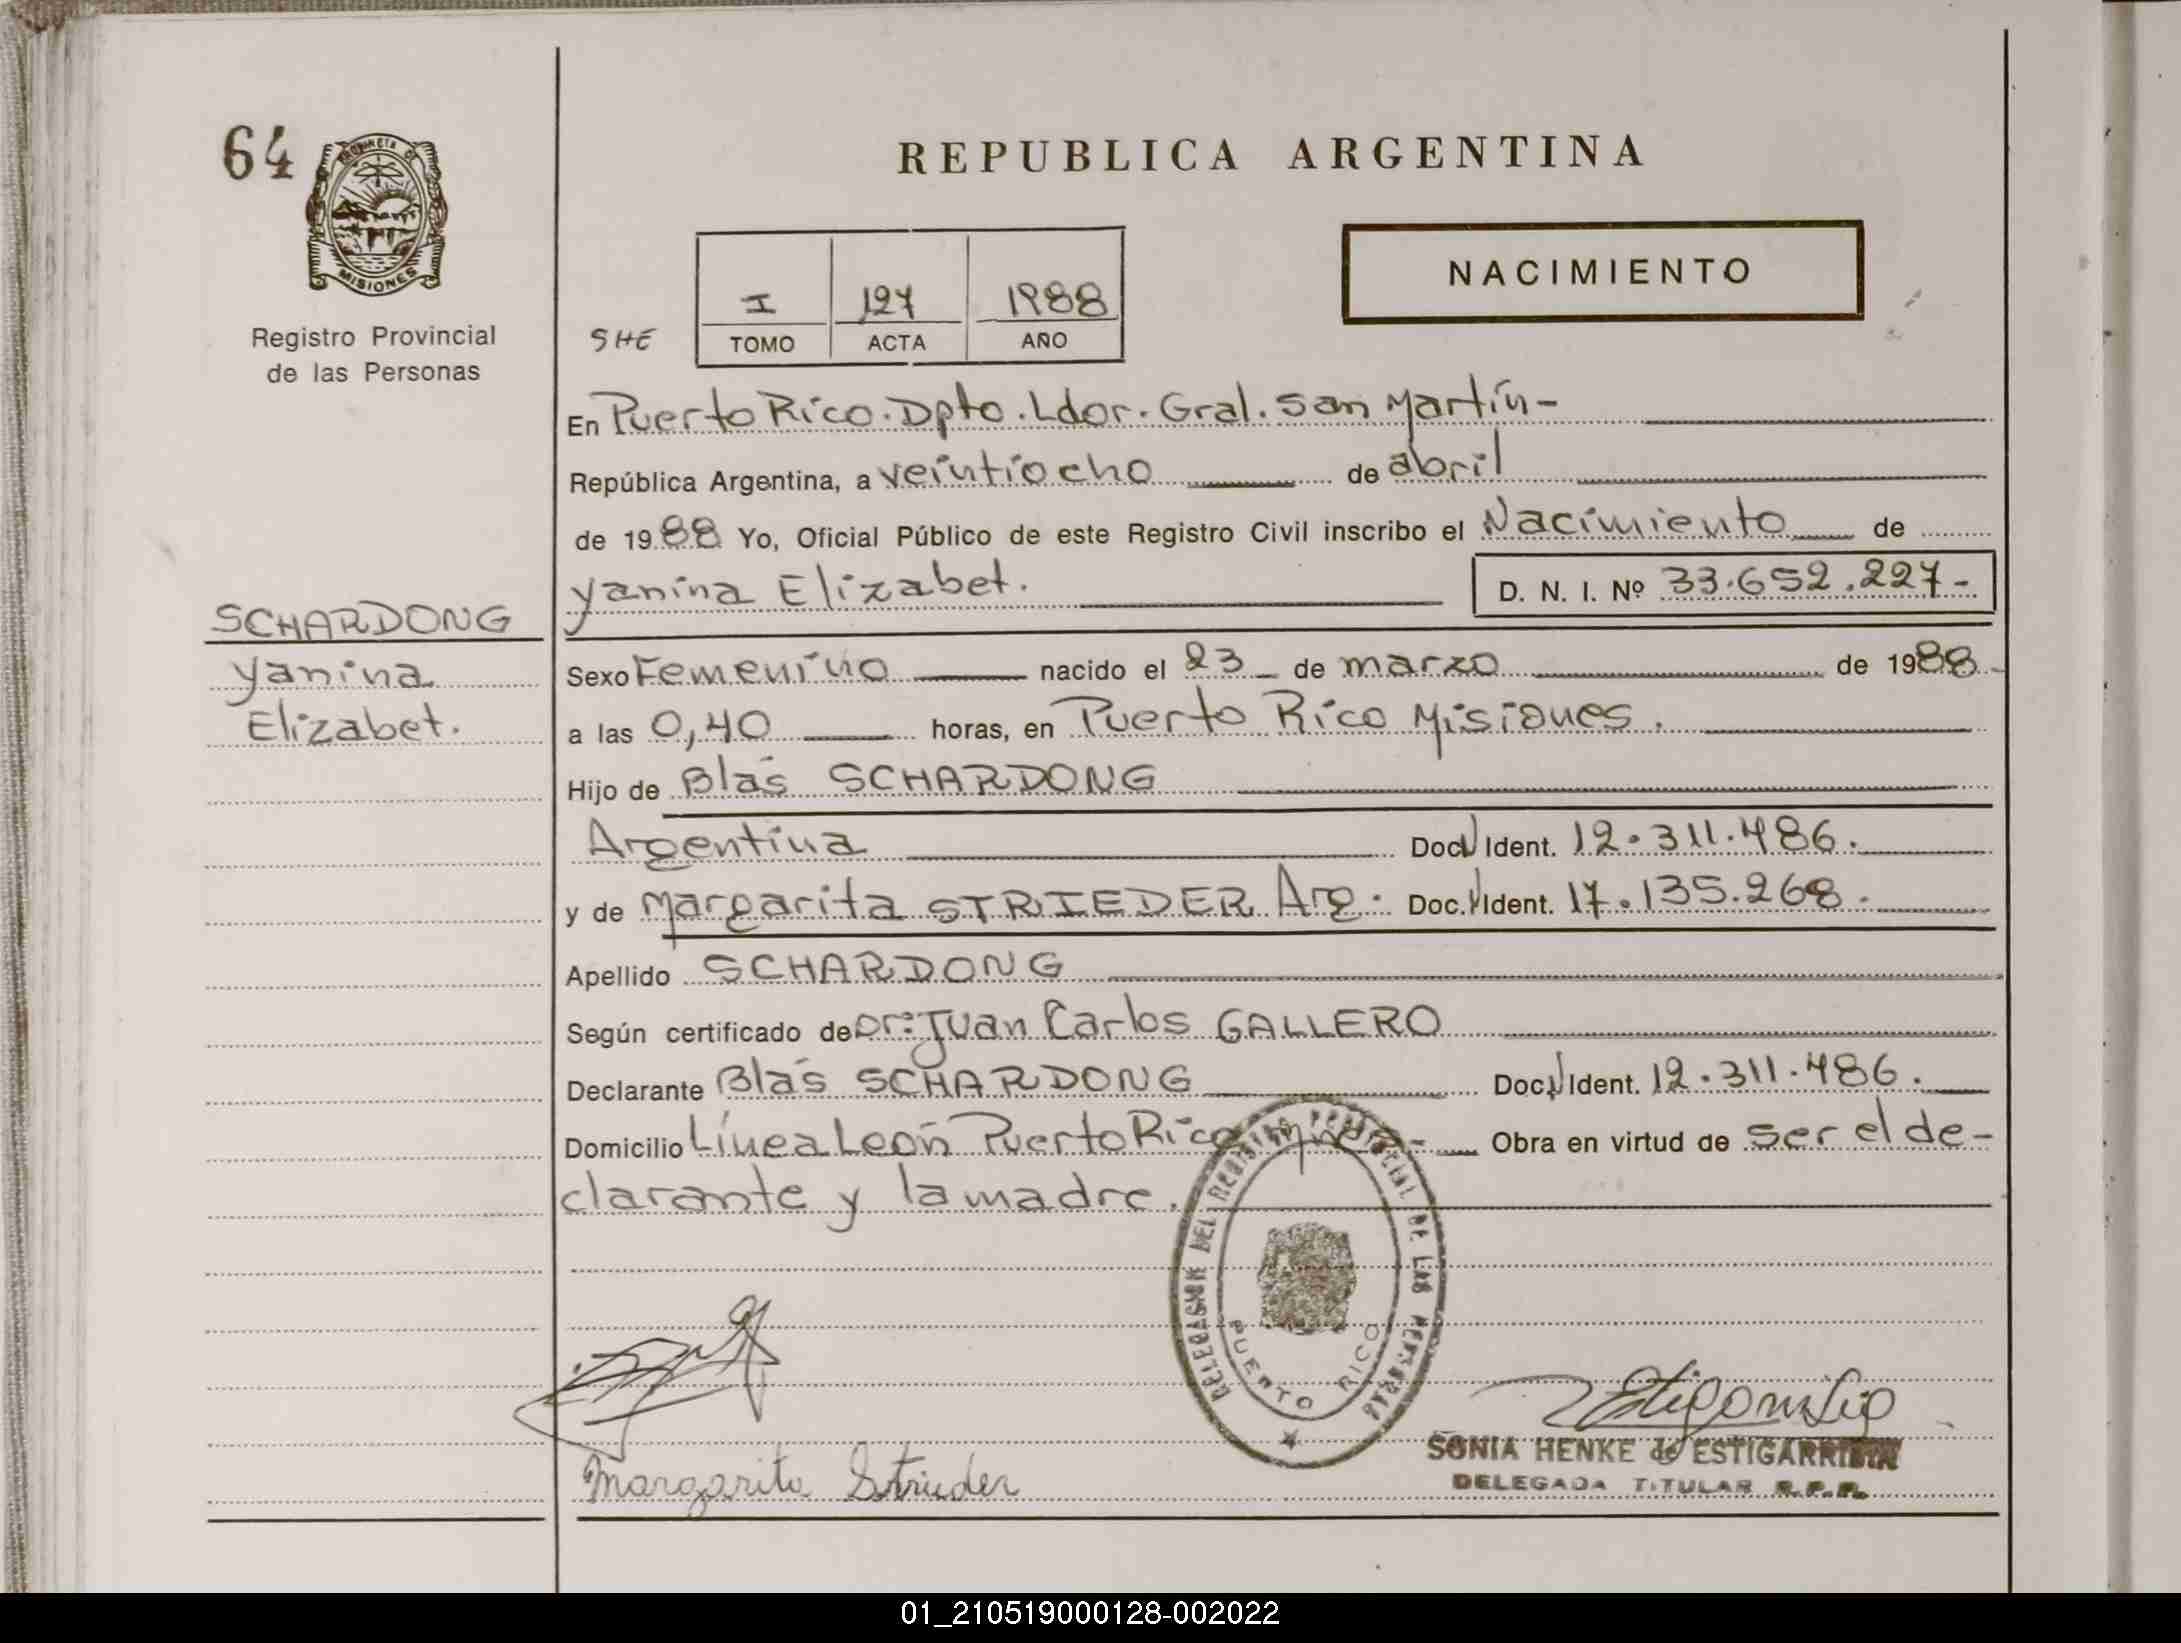 64
PROVINCIA DE
MISIONES
Registro Provincial
de las Personas
REPUBLICA ARGENTINA
NACIMIENTO
SHE
I 127 1988
TOMO ACTA AÑO
En Puerto Rico. Dpto. Ldor. Gral. San Martín-
República Argentina, a veintiocho de abril
de 1988 Yo, Oficial Público de este Registro Civil inscribo el Nacimiento de
Yanina Elizabet. D. N. I. Nº 33.652.227-
SCHARDONG
Yanina
Elizabet.
Sexo Femenino nacido el 23 de marzo de 1988-
a las 0,40 horas, en Puerto Rico Misiones.
Hijo de Blás SCHARDONG
Argentina Doc. Ident. 12.311.486.
y de Margarita STRIEDER Arg. Doc. Ident. 17.135.268.
Apellido SCHARDONG
Según certificado de Dr: Juan Carlos GALLERO
Declarante Blás SCHARDONG Doc. Ident. 12.311.486.
Domicilio Línea León Puerto Rico Mnes- Obra en virtud de ser el de-
clarante y la madre.
DELEGACION DEL REGISTRO PROVINCIAL DE LAS PERSONAS
PUERTO RICO
Margarita Strieder
SONIA HENKE de ESTIGARRIBIA
DELEGADA TITULAR R.P.P.
01_210519000128-002022